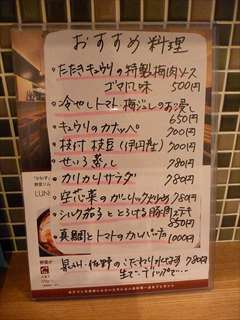 おすすめ料理
・たたきキュウリの特製梅肉ソース
ゴマ風味 500円
・冷やしトマト 梅ジュレのお浸し
650円
・キュウリのカナッペ 700円
・枝付 枝豆 700円
・せいろ蒸し 780円
・カリカリサラダ 780円
・空芯菜のガーリック炒め 780円
・シルク茄子ととろける豚肉
850円
・真鯛とトマトのカルパッチョ
1000円
780円
LUN